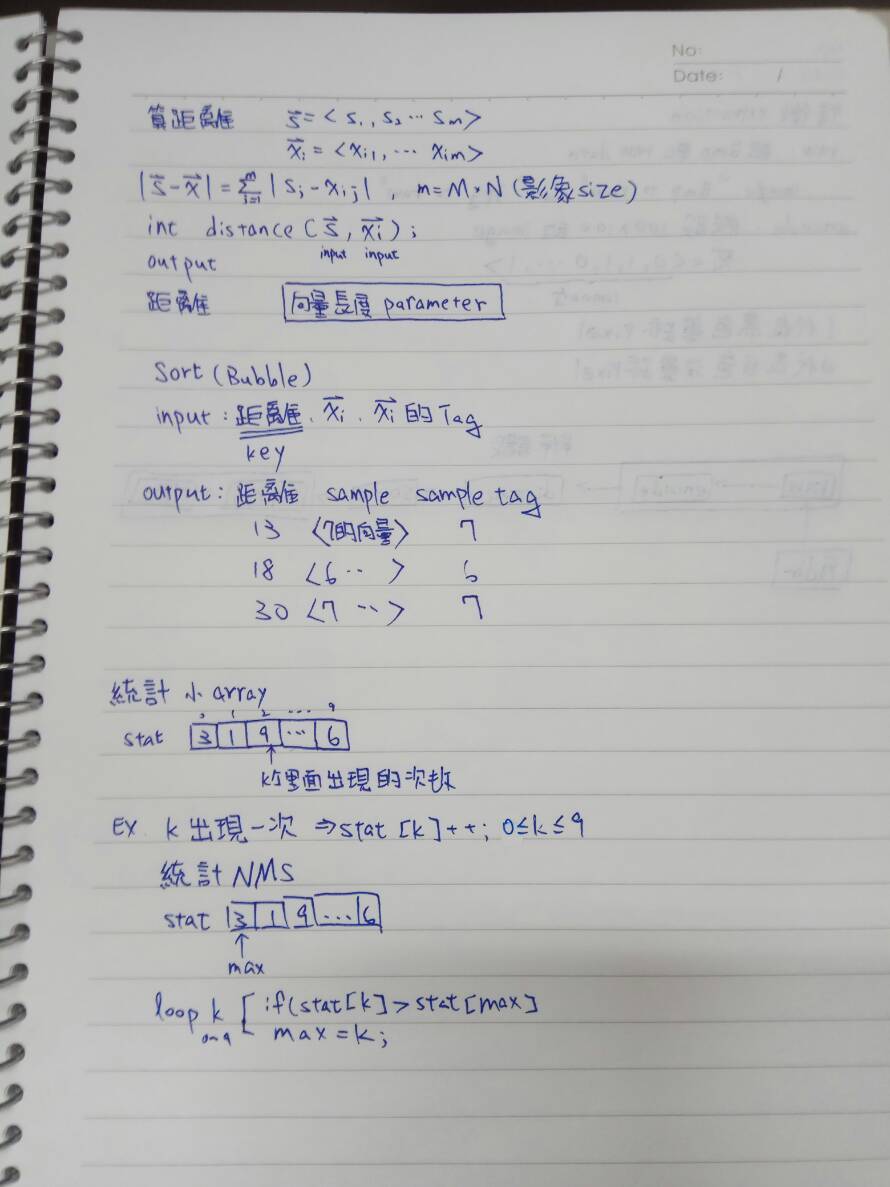 No:
Date: /
算距離 s⃗ = < s₁, s₂ ⋯ sm >
x⃗i = < xi1, ⋯ xim >
|s⃗ - x⃗| = Σ |sj - xij| , m = M×N (影象size)
int distance (s⃗, x⃗i);
input input
output
距離 向量長度 parameter
Sort (Bubble)
input : 距離、x⃗i、x⃗i 的 Tag
key
output : 距離 sample sample tag
13 <7的向量> 7
18 <6 ‥ > 6
30 <7 ‥ > 7
統計 小 array
1 2 ⋯ 9
stat 3 1 9 ⋯ 6
↑
出現的次
EX. k 出現一次 ⇒ stat [k]++; 0≤k≤9
統計 NMS
stat 3 1 9 ... 6
↑
max
loop k [ if(stat[k] > stat[max]
0~9 max = k;